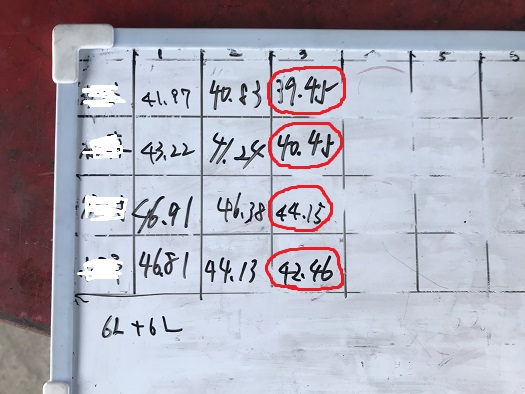 1 2 3 5 6
41.97 40.83 39.45
43.22 41.24 40.45
46.91 46.38 44.15
46.81 44.13 42.46
6L+6L